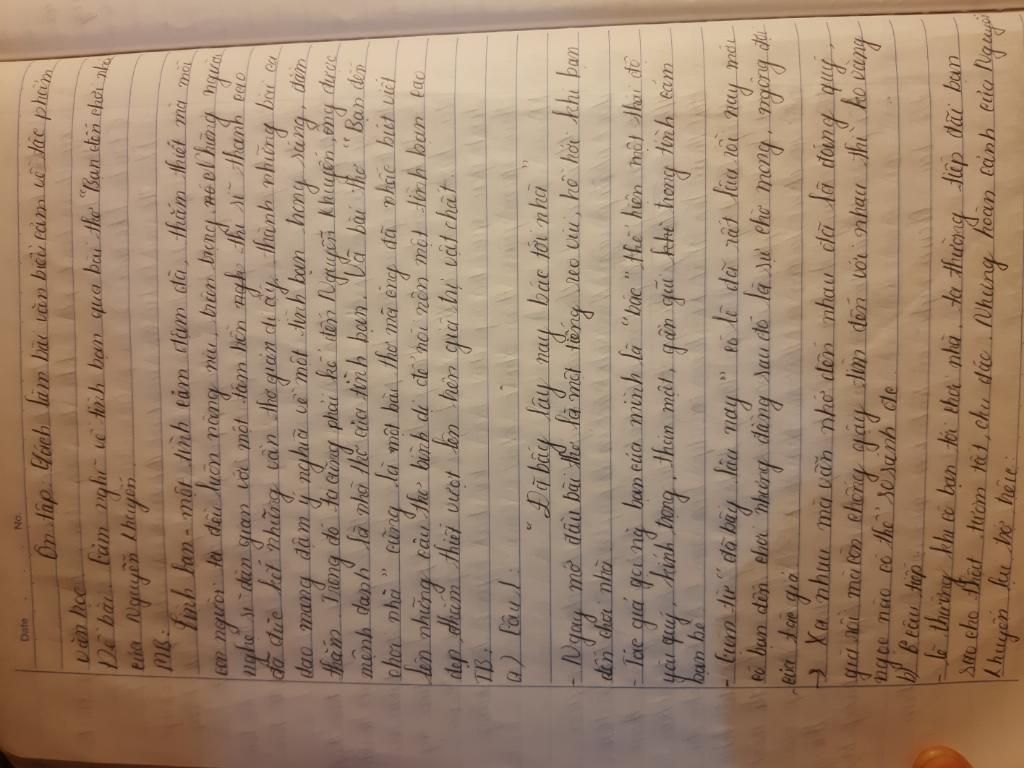 Date No.
Ôn tập Cách làm bài văn biểu cảm về tác phẩm
văn học
Đề bài: Cảm nghĩ về tình bạn qua bài thơ "Bạn đến chơi nhà"
của Nguyễn Khuyến.
MB: Tình bạn - một tình cảm đậm đà, thắm thiết mà mỗi
con người ta đều luôn nâng niu, trân trọng Những người
nghệ sĩ dân gian với một tâm hồn nghệ thi sĩ thanh cao
đã đúc kết những vần thơ giản dị ấy thành những bài ca
dao mang đậm ý nghĩa về một tình bạn trong sáng, đằm
thắm Trong đó ta cũng phải kể đến Nguyễn Khuyến, ông được
mệnh danh là nhà thơ của tình bạn. Và bài thơ "Bạn đến
chơi nhà" cũng là một bài thơ mà ông đã nhấc bút viết
lên những câu thơ bình dị để nói nên một tình bạn cao
đẹp, thắm thiết vượt lên trên giá trị vật chất.
TB:
a) Câu 1:
"Đã bấy lâu nay bác tới nhà"
- Ngay mở đầu bài thơ là một tiếng reo vui, hồ hởi khi bạn
đến chơi nhà
- Tác giả gọi người bạn của mình là "bác", thể hiện một thái độ
yêu quý, kính trọng, thân mật, gần gũi trong tình cảm
bạn bè
- Cụm từ "đã bấy lâu nay" có lẽ đã rất lâu rồi nay mới
có bạn đến chơi nhưng đằng sau đó là sự chờ mong, ngóng đợi
của tác giả
-> Xa nhau mà vẫn nhớ đến nhau đã là đáng quý,
già rồi mà còn chống gậy tìm đến với nhau thì ko vàng
ngọc nào có thể so sánh đc
b) 6 câu tiếp:
- Lẽ thường khi có bạn tới thăm nhà, ta thường tiếp đãi bạn
sao cho thật tươm tất, chu đáo. Nhưng hoàn cảnh của Nguyễn
Khuyến lại bỏ hữu: